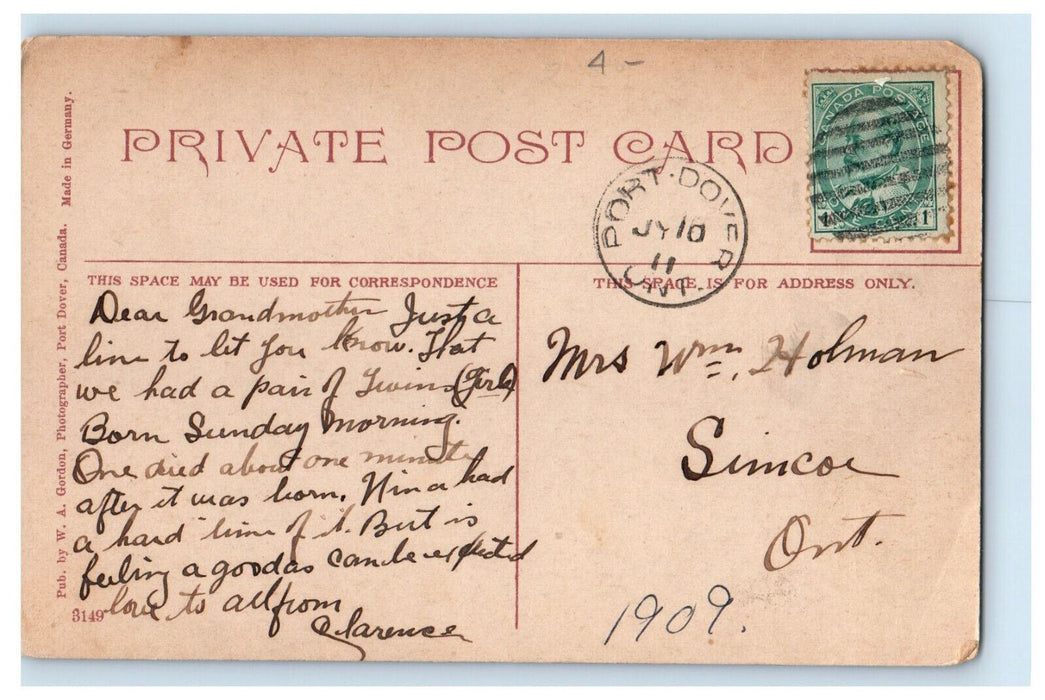 4 -
PRIVATE POST CARD
CANADA POSTAGE
1 1
PORT·DOVER
JY 18
11
ONT.
THIS SPACE MAY BE USED FOR CORRESPONDENCE
THIS SPACE IS FOR ADDRESS ONLY.
Dear Grandmother Just a
line to let you know. That
we had a pair of Twins (girls)
Born Sunday Morning.
One died about one minute
after it was born. Nina had
a hard time of it. But is
feeling a good as can be expected
love to all from
Clarence
Mrs Wm. Holman
Simcoe
Ont.
1909.
3149
Pub. by W. A. Gordon, Photographer, Port Dover, Canada. Made in Germany.